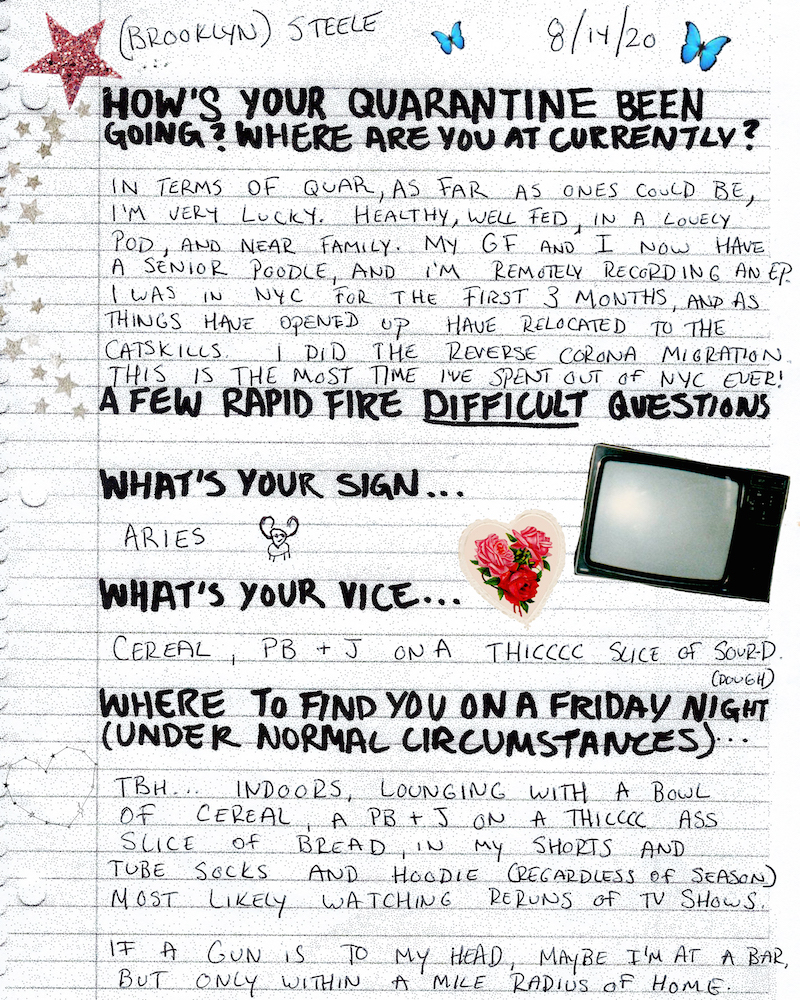 (BROOKLYN) STEELE 8/14/20
...
HOW'S YOUR QUARANTINE BEEN
GOING? WHERE ARE YOU AT CURRENTLY?
IN TERMS OF QUAR, AS FAR AS ONES COULD BE,
I'M VERY LUCKY. HEALTHY, WELL FED, IN A LOVELY
POD, AND NEAR FAMILY. MY GF AND I NOW HAVE
A SENIOR POODLE, AND I'M REMOTELY RECORDING AN EP.
I WAS IN NYC FOR THE FIRST 3 MONTHS, AND AS
THINGS HAVE OPENED UP HAVE RELOCATED TO THE
CATSKILLS. I DID THE REVERSE CORONA MIGRATION.
THIS IS THE MOST TIME I'VE SPENT OUT OF NYC EVER!
A FEW RAPID FIRE DIFFICULT QUESTIONS
WHAT'S YOUR SIGN...
ARIES
WHAT'S YOUR VICE...
CEREAL, PB + J ON A THICCCC SLICE OF SOUR-D.
(DOUGH)
WHERE TO FIND YOU ON A FRIDAY NIGHT
(UNDER NORMAL CIRCUMSTANCES)...
TBH... INDOORS, LOUNGING WITH A BOWL
OF CEREAL, A PB + J ON A THICCCC ASS
SLICE OF BREAD, IN MY SHORTS AND
TUBE SOCKS AND HOODIE (REGARDLESS OF SEASON)
MOST LIKELY WATCHING RERUNS OF TV SHOWS.
IF A GUN IS TO MY HEAD, MAYBE I'M AT A BAR,
BUT ONLY WITHIN A MILE RADIUS OF HOME.